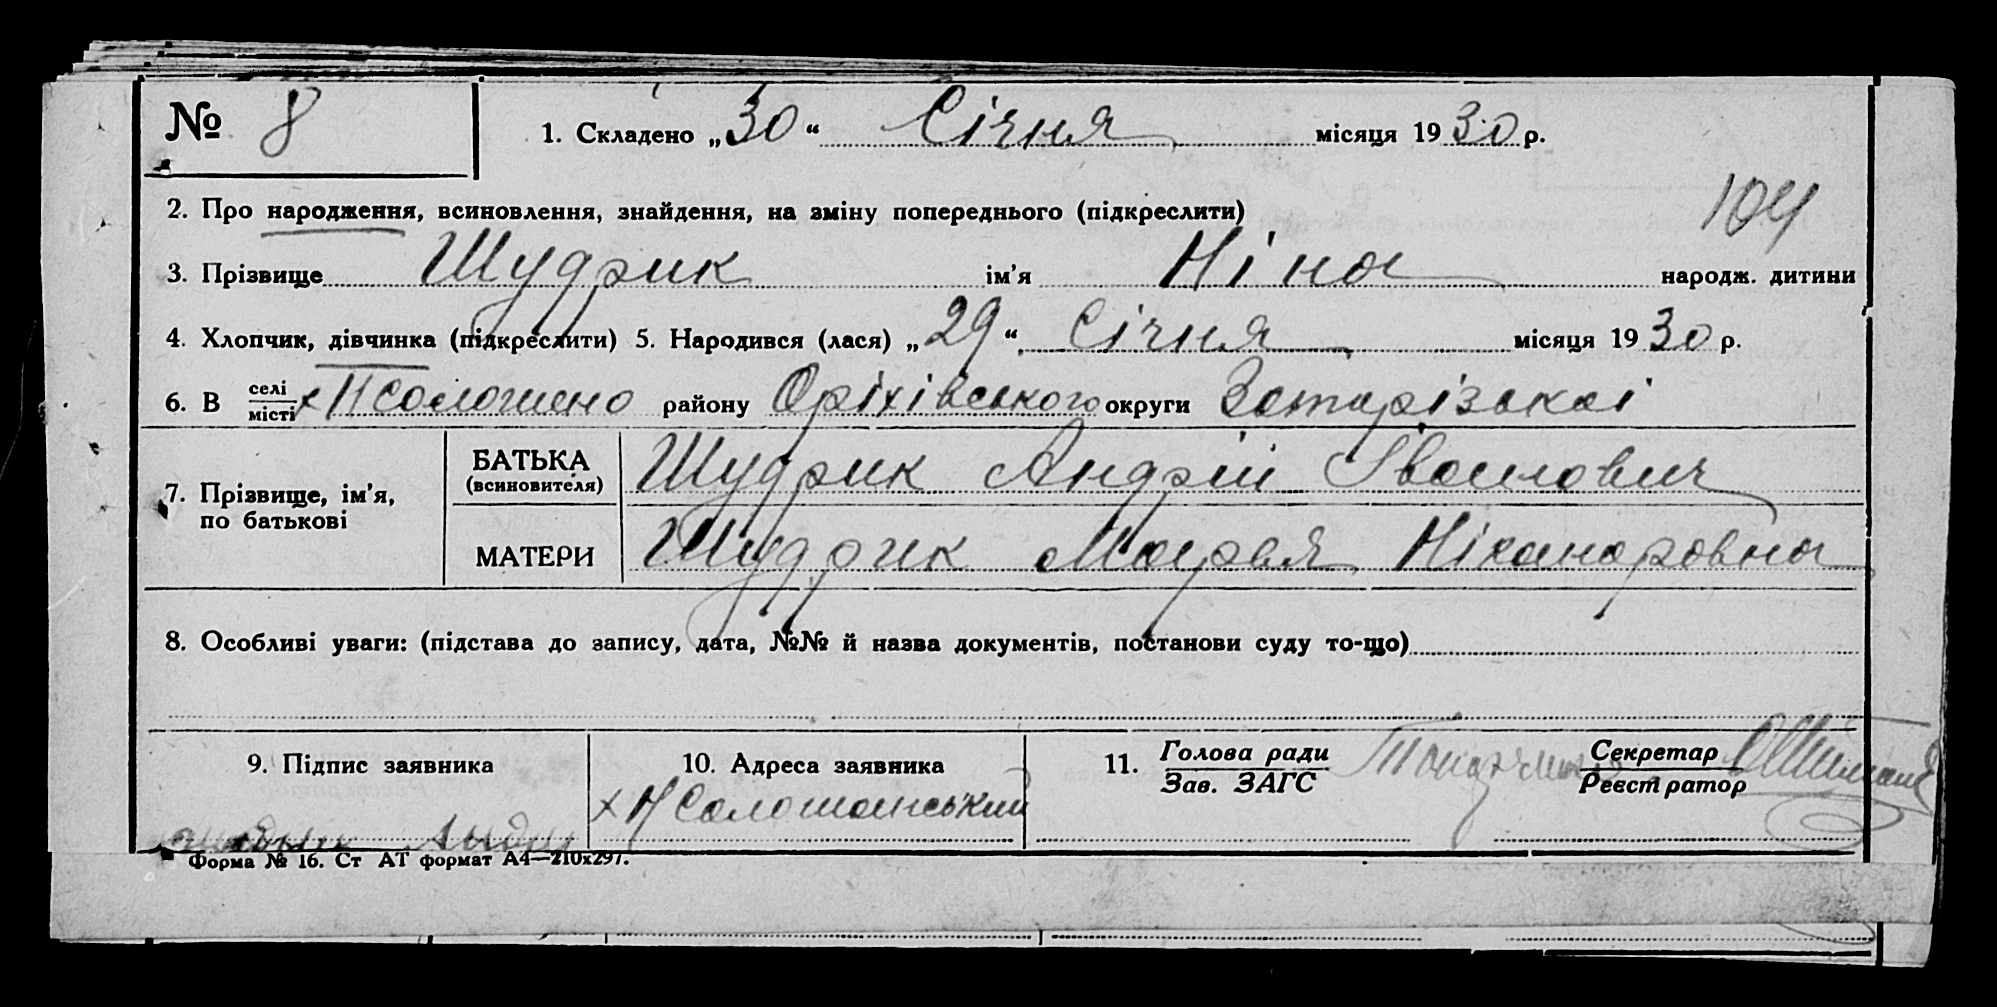 № 8 1. Складено „30“ Січня місяця 1930 р.
104
2. Про народження, всиновлення, знайдення, на зміну попереднього (підкреслити)
3. Прізвище Шудрик ім’я Ніна народж. дитини
4. Хлопчик, дівчинка (підкреслити) 5. Народився (лася) „29“ Січня місяця 1930 р.
6. В селі/місті х району Оріхівського округи
7. Прізвище, ім’я, по батькові
БАТЬКА (всиновителя) Шудрик Андрій Івалович
МАТЕРИ Шудрик Марья Ніканоровна
8. Особливі уваги: (підстава до запису, дата, №№ й назва документів, постанови суду то-що)
9. Підпис заявника
10. Адреса заявника
11. Голова ради / Зав. ЗАГС
Секретар / Реєстратор
Форма № 16. Ст АТ формат А4—210х297.